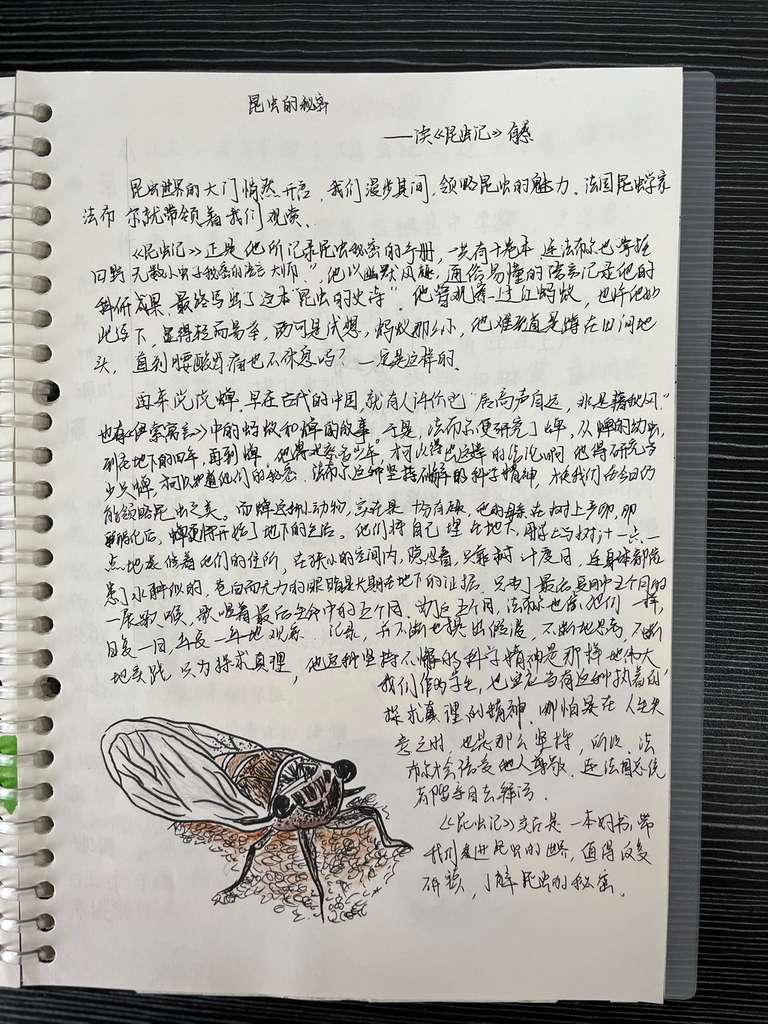 昆虫的秘密
——读《昆虫记》有感
昆虫世界的大门悄然开启，我们漫步其间，领略昆虫的魅力。法国昆虫学家
法布尔就带领着我们观赏。
《昆虫记》正是他所记录昆虫秘密的手册，一共有十卷本
田野无数小虫子秘密的语言大师"，他以幽默风趣，通俗易懂的语言记述他的
科研成果，最终写出了这本"昆虫的史诗"。他曾观察过红蚂蚁，也许他如
此写下，显得轻而易举，两可是试想，蚂蚁那么小，他难道是蹲在田间地
头，直到腰酸背痛也不休息吗？一定是这样的。
再来说说蝉，早在古代的中国，就有人评价它"居高声自远，非是藉秋风"
也有《伊索寓言》中的蚂蚁和蝉的故事。于是，法布尔便研究了蝉，从蝉的幼虫，
到在地下的四年，再到蝉，他得观察多少年，才可以得出这样的结论啊，他得研究多
少只蝉，才可以知道他们的秘密。法布尔这种坚持不懈的科学精神，才使我们在今日仍
能领略昆虫之美。而蝉这种小动物，实在是十分有趣，它的母亲在树上产卵，卵
孵化后，蝉便将开始了地下的生活。他们将自己埋在地下，用于上与树汁一点一
点地是修着他们的住所，在狭小的空间内，隐忍着，只靠树汁度日，连身体都像
患了水肿似的，苍白而无力的眼睛是长期在地下的证据。只为了最后夏日中五个月的
一展歌喉，歌唱着最后生命中的五个月，为这五个月，法布尔也像他们一样，
日复一日，年复一年地观察、记录，并不断地提出假设，不断地思考，不断
地实践，只为探求真理，他这种坚持不懈的科学精神是那样地伟大
我们作为学生，也应当有这种执着的，
探求真理的精神，哪怕是在人生失
意之时，也是那么坚持，所以，法
布尔才会倍受他人尊敬。连法国总统
《昆虫记》实在是一本好书，带
我们走进昆虫的世界，值得反复
研读，了解昆虫的秘密。